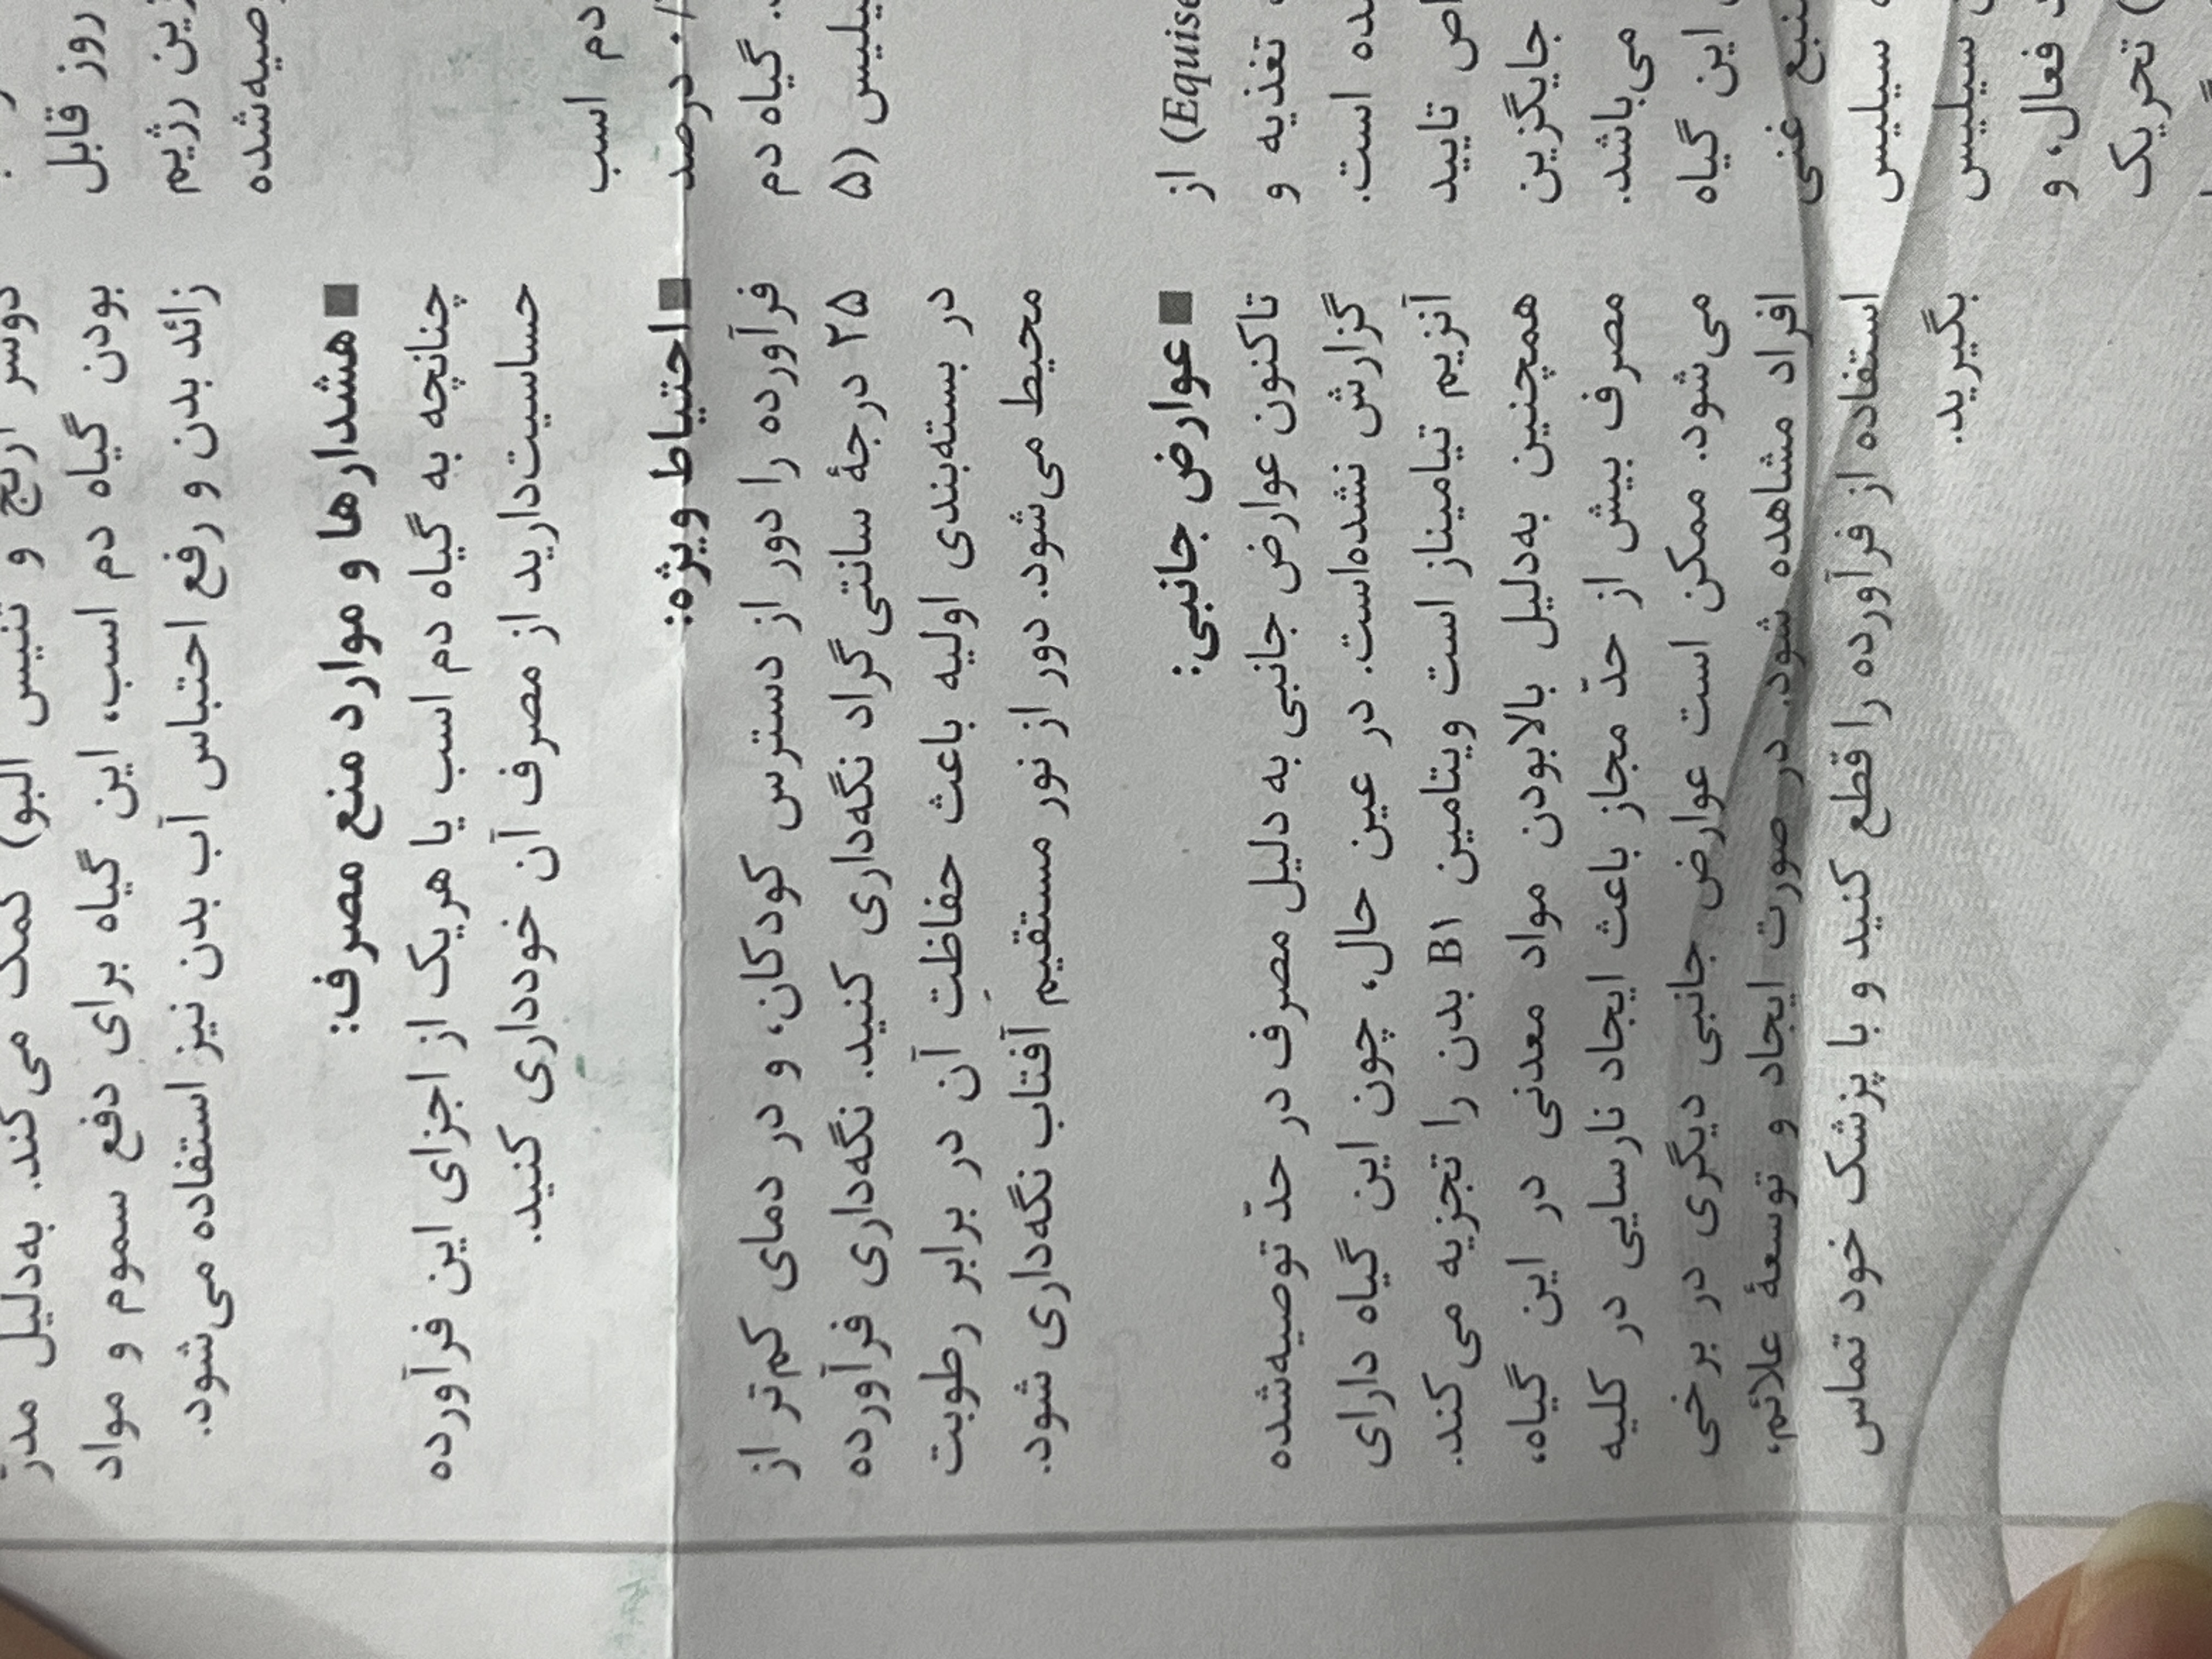 روز قابل
زین رژیم
صیه‌شده
دم اسب
درصد
گیاه دم
یلیس (۵
(Equise از
تغذیه و
ده است.
اص تایید
جایگزین
می‌باشد.
این گیاه
منبع غنی
سیلیس
سیلیس
فعال، و
تحریک
آرنج و تنیس البو) کمک می‌کند. به‌دلیل مدرّ
بودن گیاه دم اسب، این گیاه برای دفع سموم و مواد
زائد بدن و رفع احتباس آب بدن نیز استفاده می‌شود.
■ هشدارها و موارد منع مصرف:
چنانچه به گیاه دم اسب یا هریک از اجزای این فرآورده
حساسیت‌دارید از مصرف آن خودداری کنید.
■ احتیاط ویژه:
فرآورده را دور از دسترس کودکان، و در دمای کم‌تر از
۲۵ درجهٔ سانتی‌گراد نگه‌داری کنید. نگه‌داری فرآورده
در بسته‌بندی اولیه باعث حفاظتِ آن در برابر رطوبت
محیط می‌شود. دور از نور مستقیم آفتاب نگه‌داری شود.
■ عوارض جانبی:
تاکنون عوارض جانبی به دلیل مصرف در حدّ توصیه‌شده
گزارش نشده‌است. در عین حال، چون این گیاه دارای
آنزیم تیامیناز است ویتامین B۱ بدن را تجزیه می‌کند.
همچنین به‌دلیل بالابودن مواد معدنی در این گیاه،
مصرف بیش از حدّ مجاز باعث ایجاد نارسایی در کلیه
می‌شود. ممکن است عوارض جانبی دیگری در برخی
افراد مشاهده شود. در صورت ایجاد و توسعهٔ علائم،
استفاده از فرآورده را قطع کنید و با پزشک خود تماس
بگیرید.